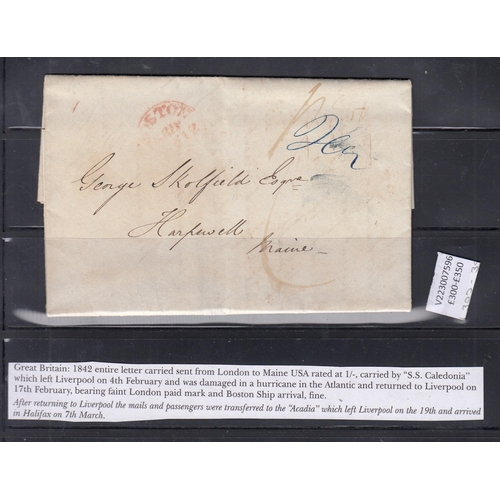 George Skolfield Esqre
Harpswell
Maine
V223007596
£300-£350
Great Britain: 1842 entire letter carried sent from London to Maine USA rated at 1/-, carried by "S.S. Caledonia"
which left Liverpool on 4th February and was damaged in a hurricane in the Atlantic and returned to Liverpool on
17th February, bearing faint London paid mark and Boston Ship arrival, fine.
After returning to Liverpool the mails and passengers were transferred to the "Acadia" which left Liverpool on the 19th and arrived
in Halifax on 7th March.